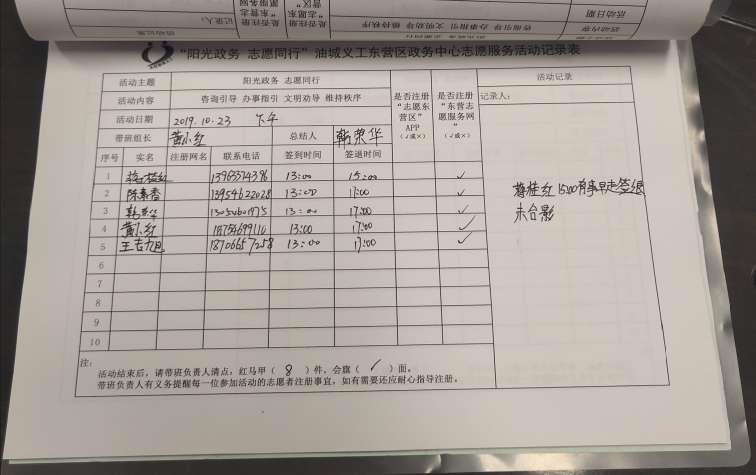 "阳光政务 志愿同行"油城义工东营区政务中心志愿服务活动记录表
活动主题 阳光政务 志愿同行 是否注册"志愿东营区"APP(√或×) 是否注册"东营志愿服务网"(√或×) 活动记录
活动内容 咨询引导 办事指引 文明劝导 维持秩序 记录人:
活动日期 2019.10.23 下午
带班组长 黄小红 总结人 韩荣华
序号 实名 注册网名 联系电话 签到时间 签退时间
1 蒋桂红 13:00 15:00 √
2 陈素香 13954622028 13:00 17:00 √
3 韩荣华 13:00 17:00 √
4 黄小红 13:00 17:00 √
5 18706657258 13:00 17:00 √
6
7
8
9
10
蒋桂红15:00有事早走签退
未合影
注:
活动结束后,请带班负责人清点,红马甲( 8 )件,会旗( √ )面。
带班负责人有义务提醒每一位参加活动的志愿者注册事宜,如有需要还应耐心指导注册。